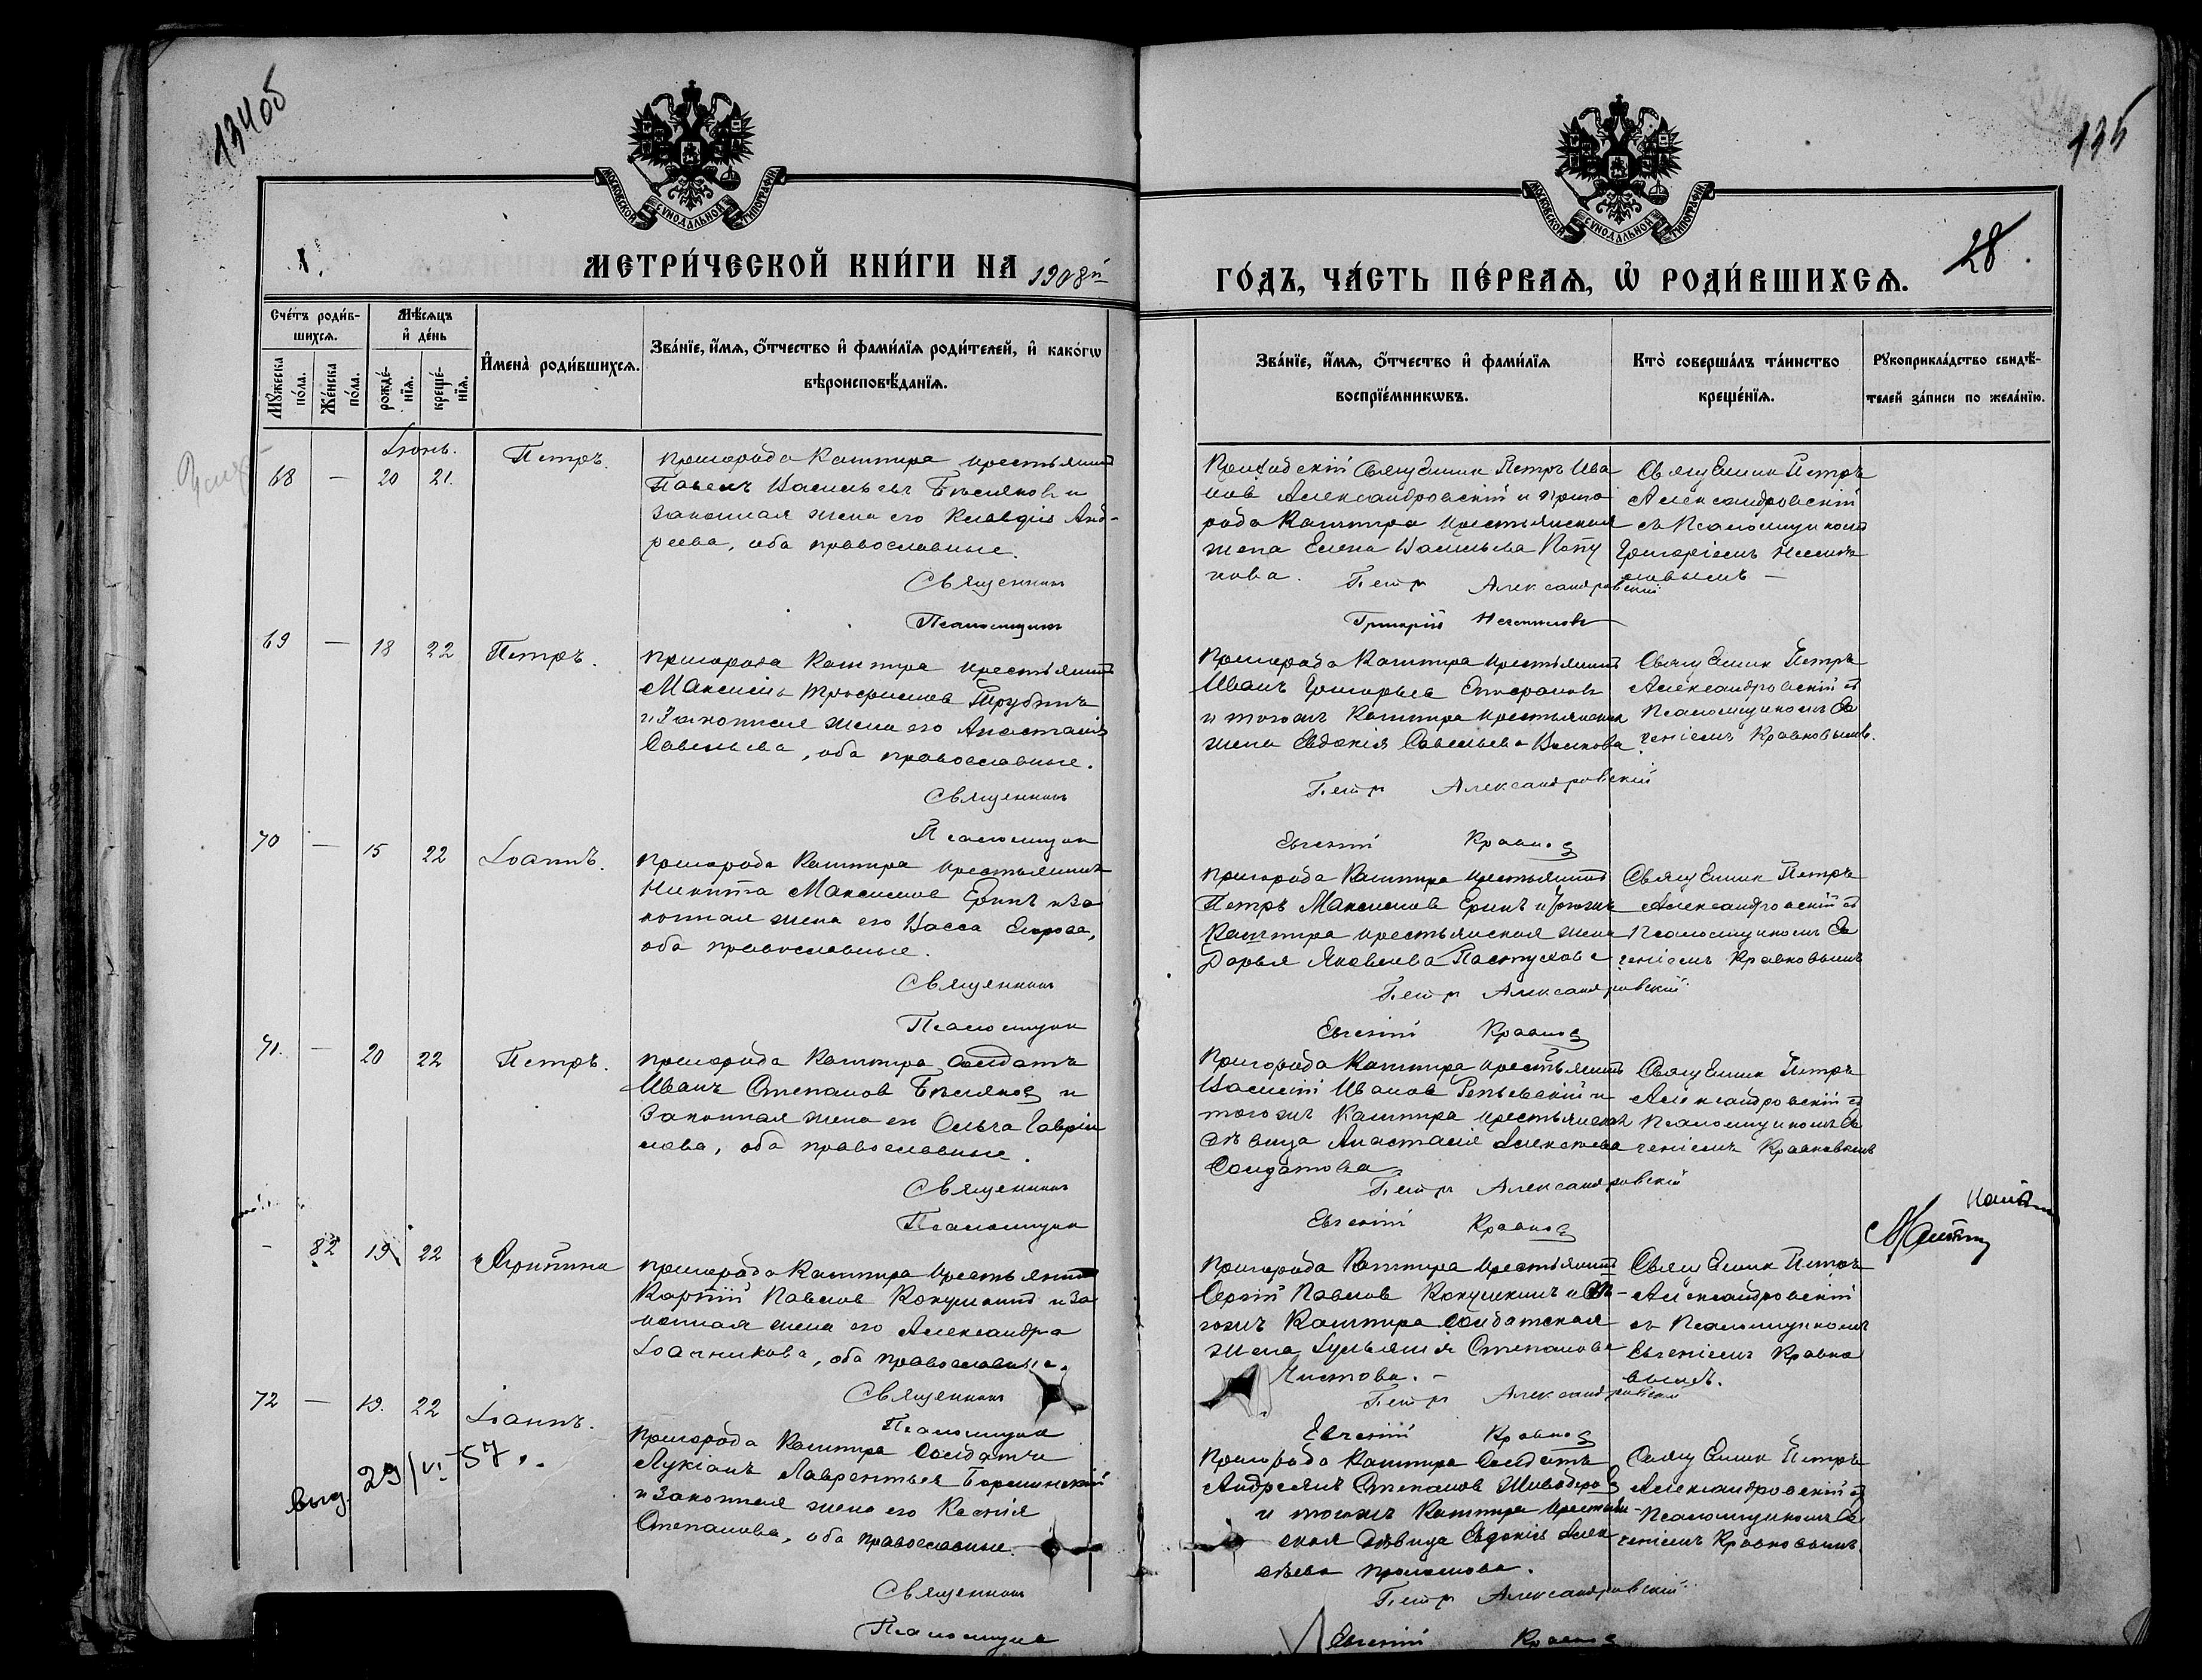 134об
135
МОСКОВСКОЙ СУНОДАЛЬНОЙ ТИПОГРАФІИ
МОСКОВСКОЙ СУНОДАЛЬНОЙ ТИПОГРАФІИ
I.
МЕТРИ́ЧЕСКОЙ КНИ́ГИ НА 1908й
ГО́ДЪ, ЧА́СТЬ ПЕ́РВАѦ, Ѡ҆ РОДИ́ВШИХСѦ.
28
Сче́тъ роди́в-
шихсѧ.
Мѣ́сѧцъ
и҆ де́нь
Мꙋ́жеска
по́ла.
Же́нска
по́ла.
рожде́-
нїѧ.
креще́-
нїѧ.
И҆мена̀ роди́вшихсѧ.
Зва́нїе, и҆́мѧ, ѻ҆́тчество и҆ фами́лїѧ роди́телей, и҆ како́гѡ
вѣроисповѣ́данїѧ.
Зва́нїе, и҆́мѧ, ѻ҆́тчество и҆ фами́лїѧ
воспрїе́мникѡвъ.
Кто̀ соверша́лъ та́инство
креще́нїѧ.
Рꙋкоприкла́дство свидѣ́-
телей за́писи по жела́нїю.
Іюнь.
68 — 20 21. Петръ.
Пригорода Каштира крестьянинъ
Павелъ Васильевъ Бѣляковъ и
законная жена его Клавдія Анд-
реева, оба православные.
Священникъ
Псаломщикъ
Приходскій Священник Петръ Ива
нов Александровскій и приго
рода Каштира крестьянская
жена Елена Васильева Попу
нова.
Петр Александровскій
Григорій
Священник Петръ
Александровскій
съ Псаломщикомъ
Григоріемъ
69 — 18 22 Петръ.
Пригорода Каштира крестьянинъ
Максимъ Трофимов Трубинъ
и законная жена его Анастасія
Савельева, оба православные.
Священникъ
Псаломщик
Пригорода Каштира крестьянинъ
Иванъ Григорьев
и тогожъ Каштира крестьянская
жена Евдокія Савельева Волкова.
Петр Александровскій
Евгеній Краснов
Священник Петръ
Александровскій съ
Псаломщикомъ Ев
геніемъ Красновымъ.
70 — 15 22 Іоаннъ.
Пригорода Каштира крестьянинъ
Никита Максимов Еринъ и за
конная жена его Васса Егорова,
оба православные.
Священникъ
Псаломщик
Пригорода Каштира крестьянинъ
Петръ Максимов Еринъ и тогожъ
Каштира крестьянская жена
Дарья Яковлева Пастухова
Петр Александровскій
Евгеній Краснов
Священник Петръ
Александровскій съ
Псаломщикомъ Ев
геніемъ Красновымъ
71. — 20 22 Петръ.
Пригорода Каштира Солдатъ
Иванъ Степанов Бѣляков и
законная жена ег Ольга Гаврии
лова, оба православные.
Священникъ
Псаломщик
Пригорода Каштира крестьянинъ
Василій Иванов и
тогожъ Каштира крестьянская
дѣвица Анастасія Алексѣева
Солдатова
Петр Александровскій
Евгеній Краснов
Священник Петръ
Александровскій съ
Псаломщикомъ Ев
геніемъ Красновымъ
- 82 19 22 Агриппина
Пригорода Каштира крестьянинъ
Карпъ Павлов Кокушкинъ и за
конная жена его Александра
Іоанникова, оба православные.
Священникъ
Псаломщик
Пригорода Каштира крестьянинъ
Сергій Павлов Кокушкинъ и то-
гожъ Каштира Солдатская
жена Іуліанія Степанова
Чистова. -
Петр Александровскій
Евгеній Краснов
Священник Петръ
Александровскій
съ Псаломщикомъ
Евгеніемъ Красно
вымъ.
72 — 19. 22 Іоаннъ.
Пригорода Каштира Солдатъ
Лукіанъ Лаврентьев
и законная жена его Ксенія
Степанова, оба православные.
Священникъ
Псаломщик
выд. 29/VI 57г.
Пригорода Каштира Солдатъ
Андреянъ Степанов
и тогожъ Каштира крестьян-
ская дѣвица Евдокія Алек
сѣева
Петр Александровскій
Евгеній Краснов
Священник Петръ
Александровскій съ
Псаломщикомъ Ев
геніемъ Красновымъ.